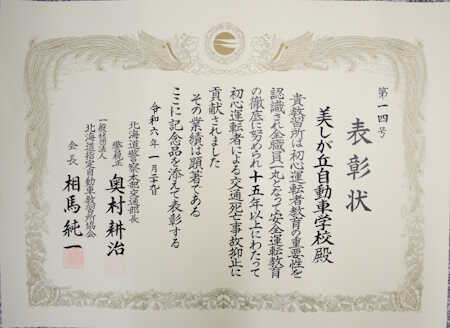 第一四号
表彰状
美しが丘自動車学校殿
貴教習所は初心運転者教育の重要性を
認識され全職員一丸となって安全運転教育
の徹底に努められ十五年以上にわたって
初心運転者による交通死亡事故抑止に
貢献されました
その業績は顕著である
ここに記念品を添えて表彰する
令和六年一月二十九日
北海道警察本部交通部長
警視正 奥村耕治
一般社団法人
北海道指定自動車教習所協会
会長 相馬純一